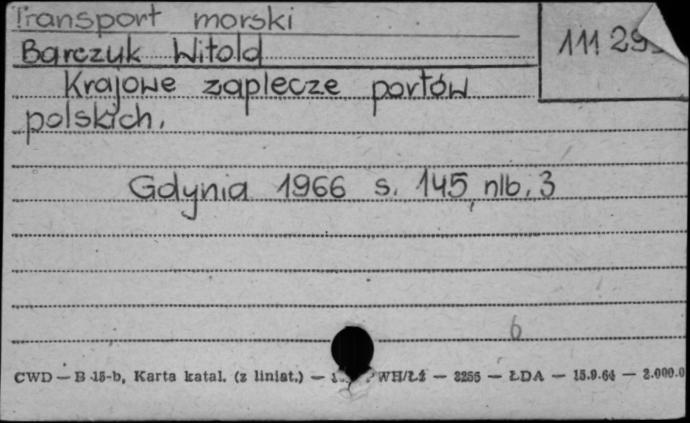 Transport morski
Barczyk Witold
111 29
Krajowe zaplecze portów
polskich.
Gdynia 1966 s. 145, nlb. 3
6
CWD — B-15-b, Karta katal. (z liniat.) — WH/Łż — 3255 — ŁDA — 15.9.64 — 2.000.0